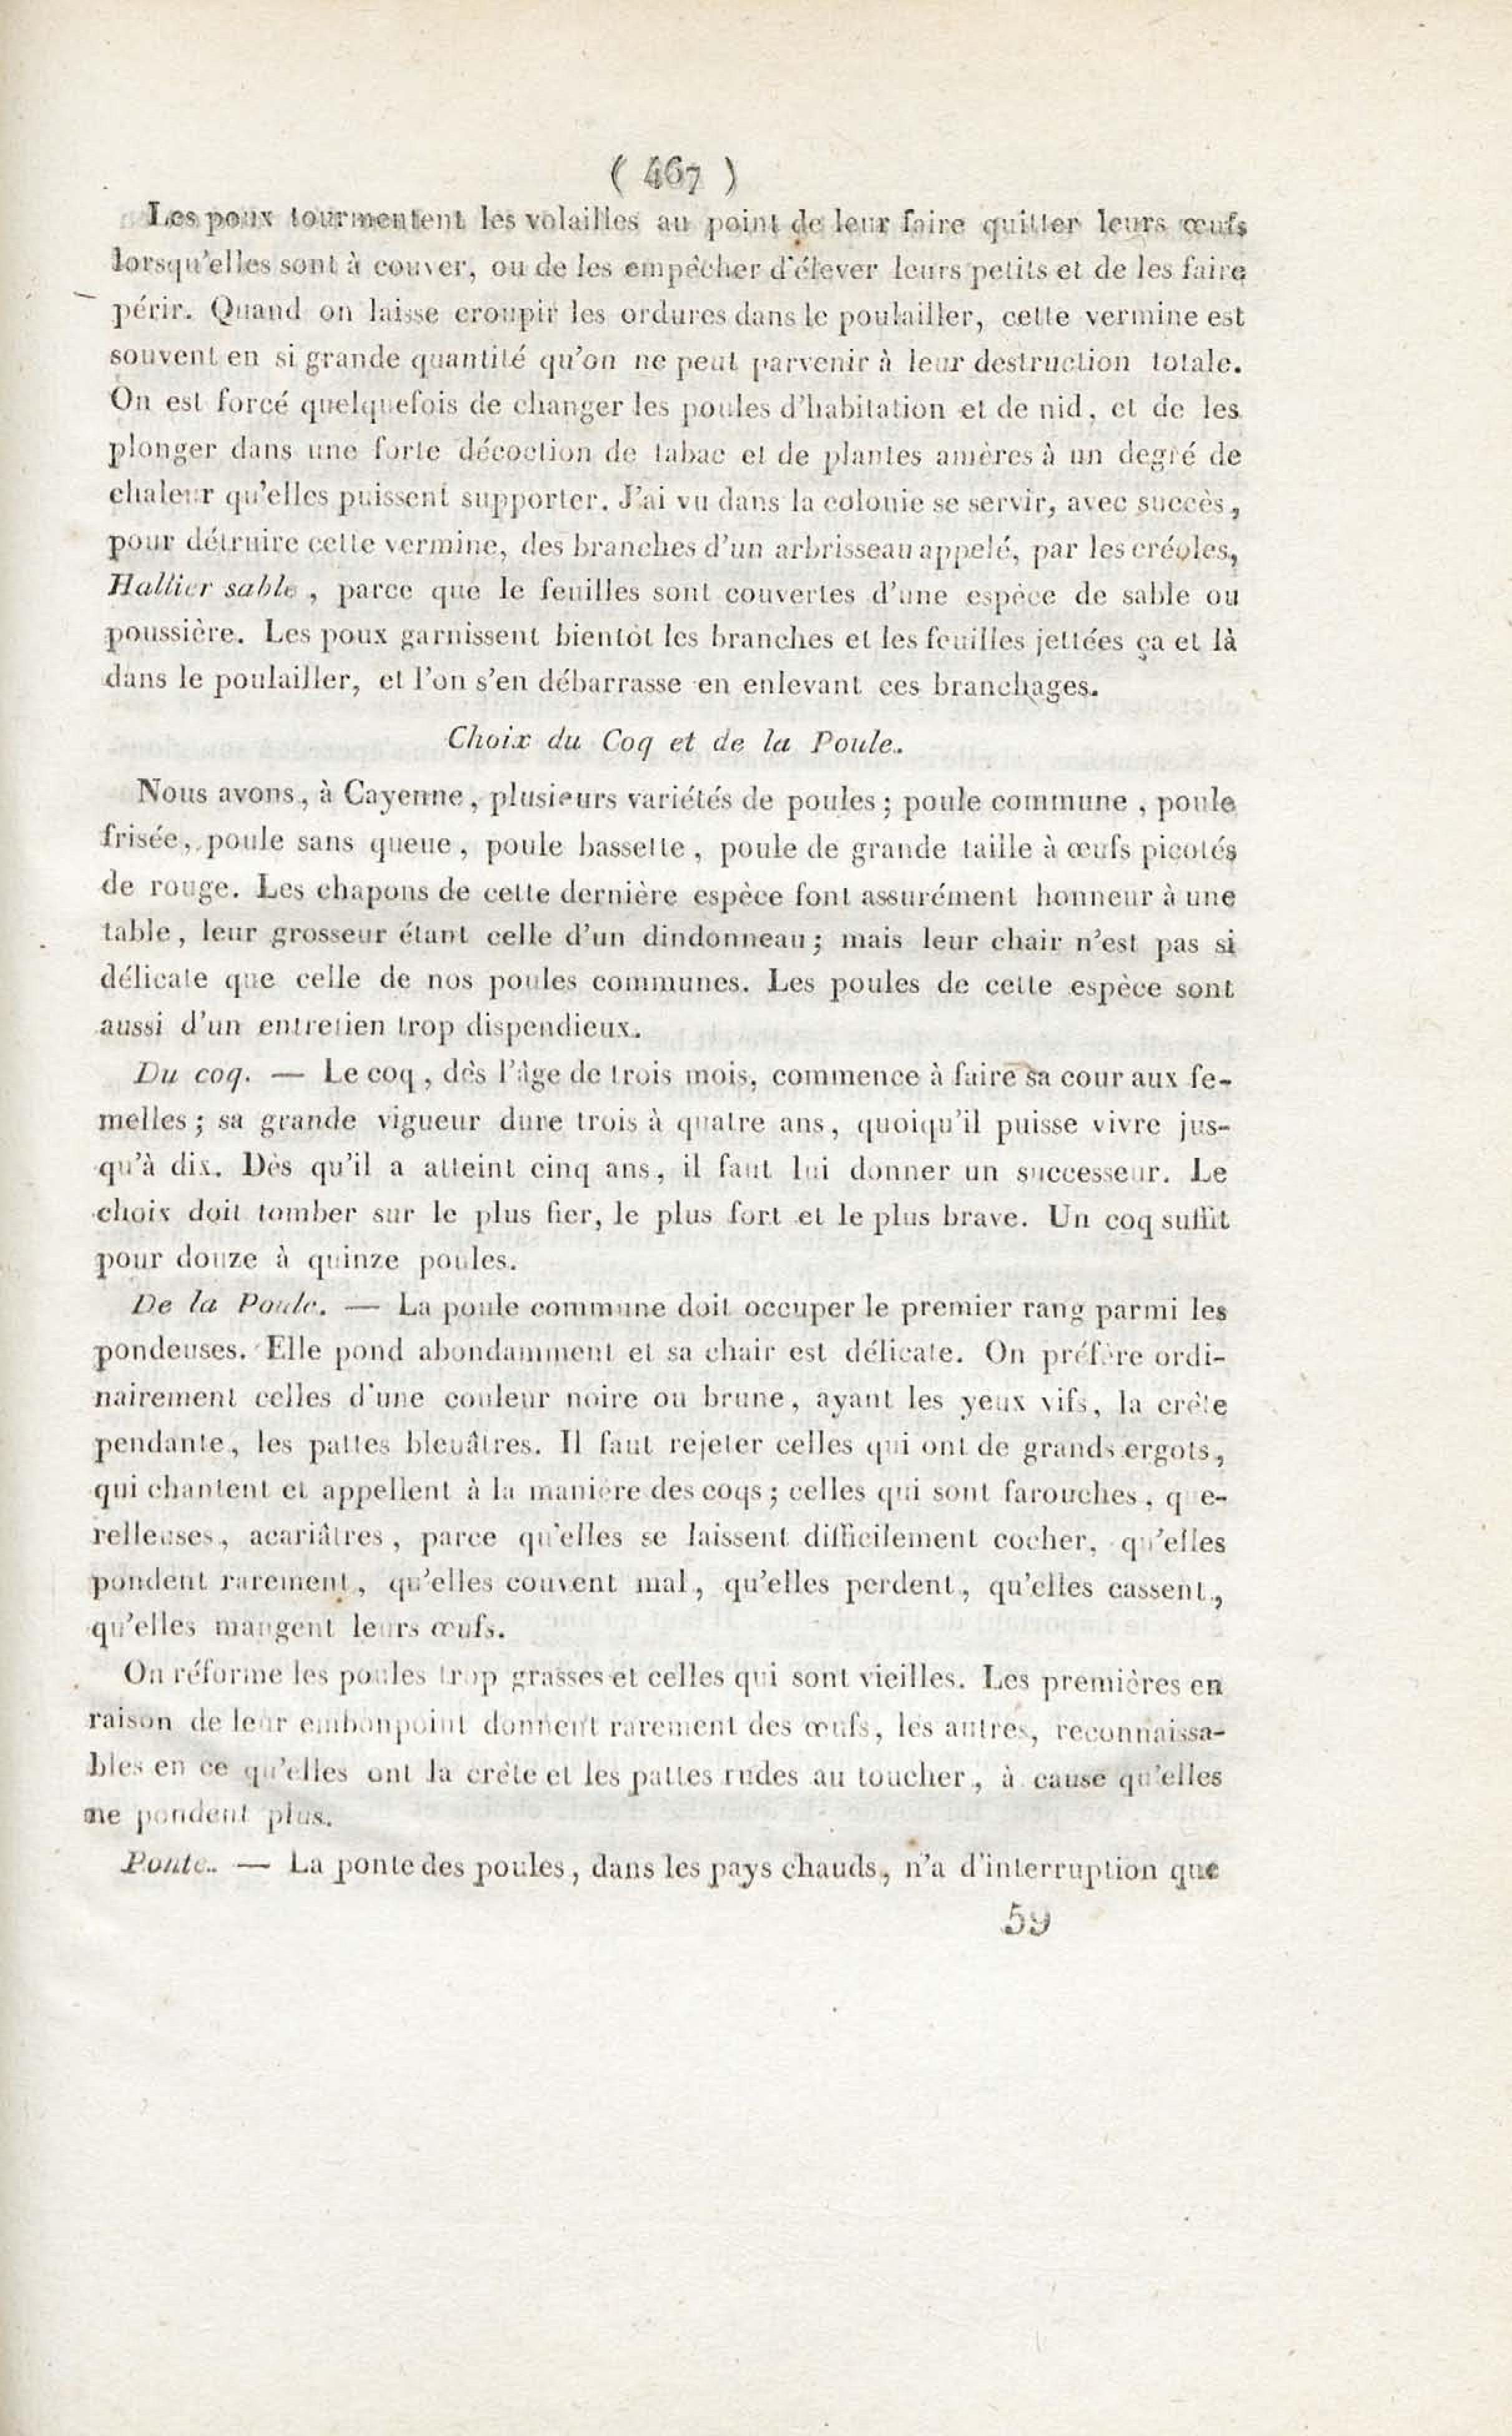 ( 467 )
Les poux tourmentent les volailles au point de leur faire quitter leurs œufs
lorsqu'elles sont à couver, ou de les empêcher d'élever leurs petits et de les faire
périr. Quand on laisse croupir les ordures dans le poulailler, cette vermine est
souvent en si grande quantité qu'on ne peut parvenir à leur destruction totale.
On est forcé quelquefois de changer les poules d'habitation et de nid, et de les
plonger dans une forte décoction de tabac et de plantes amères à un degré de
chaleur qu'elles puissent supporter. J'ai vu dans la colonie se servir, avec succès,
pour détruire cette vermine, des branches d'un arbrisseau appelé, par les créoles,
Hallier sable, parce que le feuilles sont couvertes d'une espèce de sable ou
poussière. Les poux garnissent bientôt les branches et les feuilles jettées ça et là
dans le poulailler, et l'on s'en débarrasse en enlevant ces branchages.
Choix du Coq et de la Poule.
Nous avons, à Cayenne, plusieurs variétés de poules; poule commune, poule
frisée, poule sans queue, poule bassette, poule de grande taille à œufs picotés
de rouge. Les chapons de cette dernière espèce font assurément honneur à une
table, leur grosseur étant celle d'un dindonneau; mais leur chair n'est pas si
délicate que celle de nos poules communes. Les poules de cette espèce sont
aussi d'un entretien trop dispendieux.
Du coq. — Le coq, dès l'âge de trois mois, commence à faire sa cour aux fe-
melles; sa grande vigueur dure trois à quatre ans, quoiqu'il puisse vivre jus-
qu'à dix. Dès qu'il a atteint cinq ans, il faut lui donner un successeur. Le
choix doit tomber sur le plus fier, le plus fort et le plus brave. Un coq suffit
pour douze à quinze poules.
De la Poule. — La poule commune doit occuper le premier rang parmi les
pondeuses. Elle pond abondamment et sa chair est délicate. On préfère ordi-
nairement celles d'une couleur noire ou brune, ayant les yeux vifs, la crête
pendante, les pattes bleuâtres. Il faut rejeter celles qui ont de grands ergots,
qui chantent et appellent à la manière des coqs; celles qui sont farouches, que-
relleuses, acariâtres, parce qu'elles se laissent difficilement cocher, qu'elles
pondent rarement, qu'elles couvent mal, qu'elles perdent, qu'elles cassent,
qu'elles mangent leurs œufs.
On réforme les poules trop grasses et celles qui sont vieilles. Les premières en
raison de leur embonpoint donnent rarement des œufs, les autres, reconnaissa-
bles en ce qu'elles ont la crête et les pattes rudes au toucher, à cause qu'elles
ne pondent plus.
Ponte. — La ponte des poules, dans les pays chauds, n'a d'interruption que
59